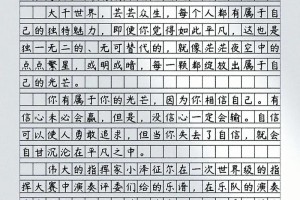 大千世界，芸芸众生，每个人都有属于自
己的独特魅力，即使你觉得如此平凡，这也是
独一无二的、无可替代的，就像茫茫夜空中的
点点繁星，或明或暗，每一颗都绽放出属于自
己的光芒。
你有属于你的光芒，因为你相信自己。有
信心未必会赢，但是，没信心一定会输。自信
可以使人勇敢追求，但当你失去了自信，就会
自甘沉沦在平凡之中。
伟大的指挥家小泽征尔在一次世界级的指
挥大赛中演奏评委们给的乐谱，在乐队的演奏